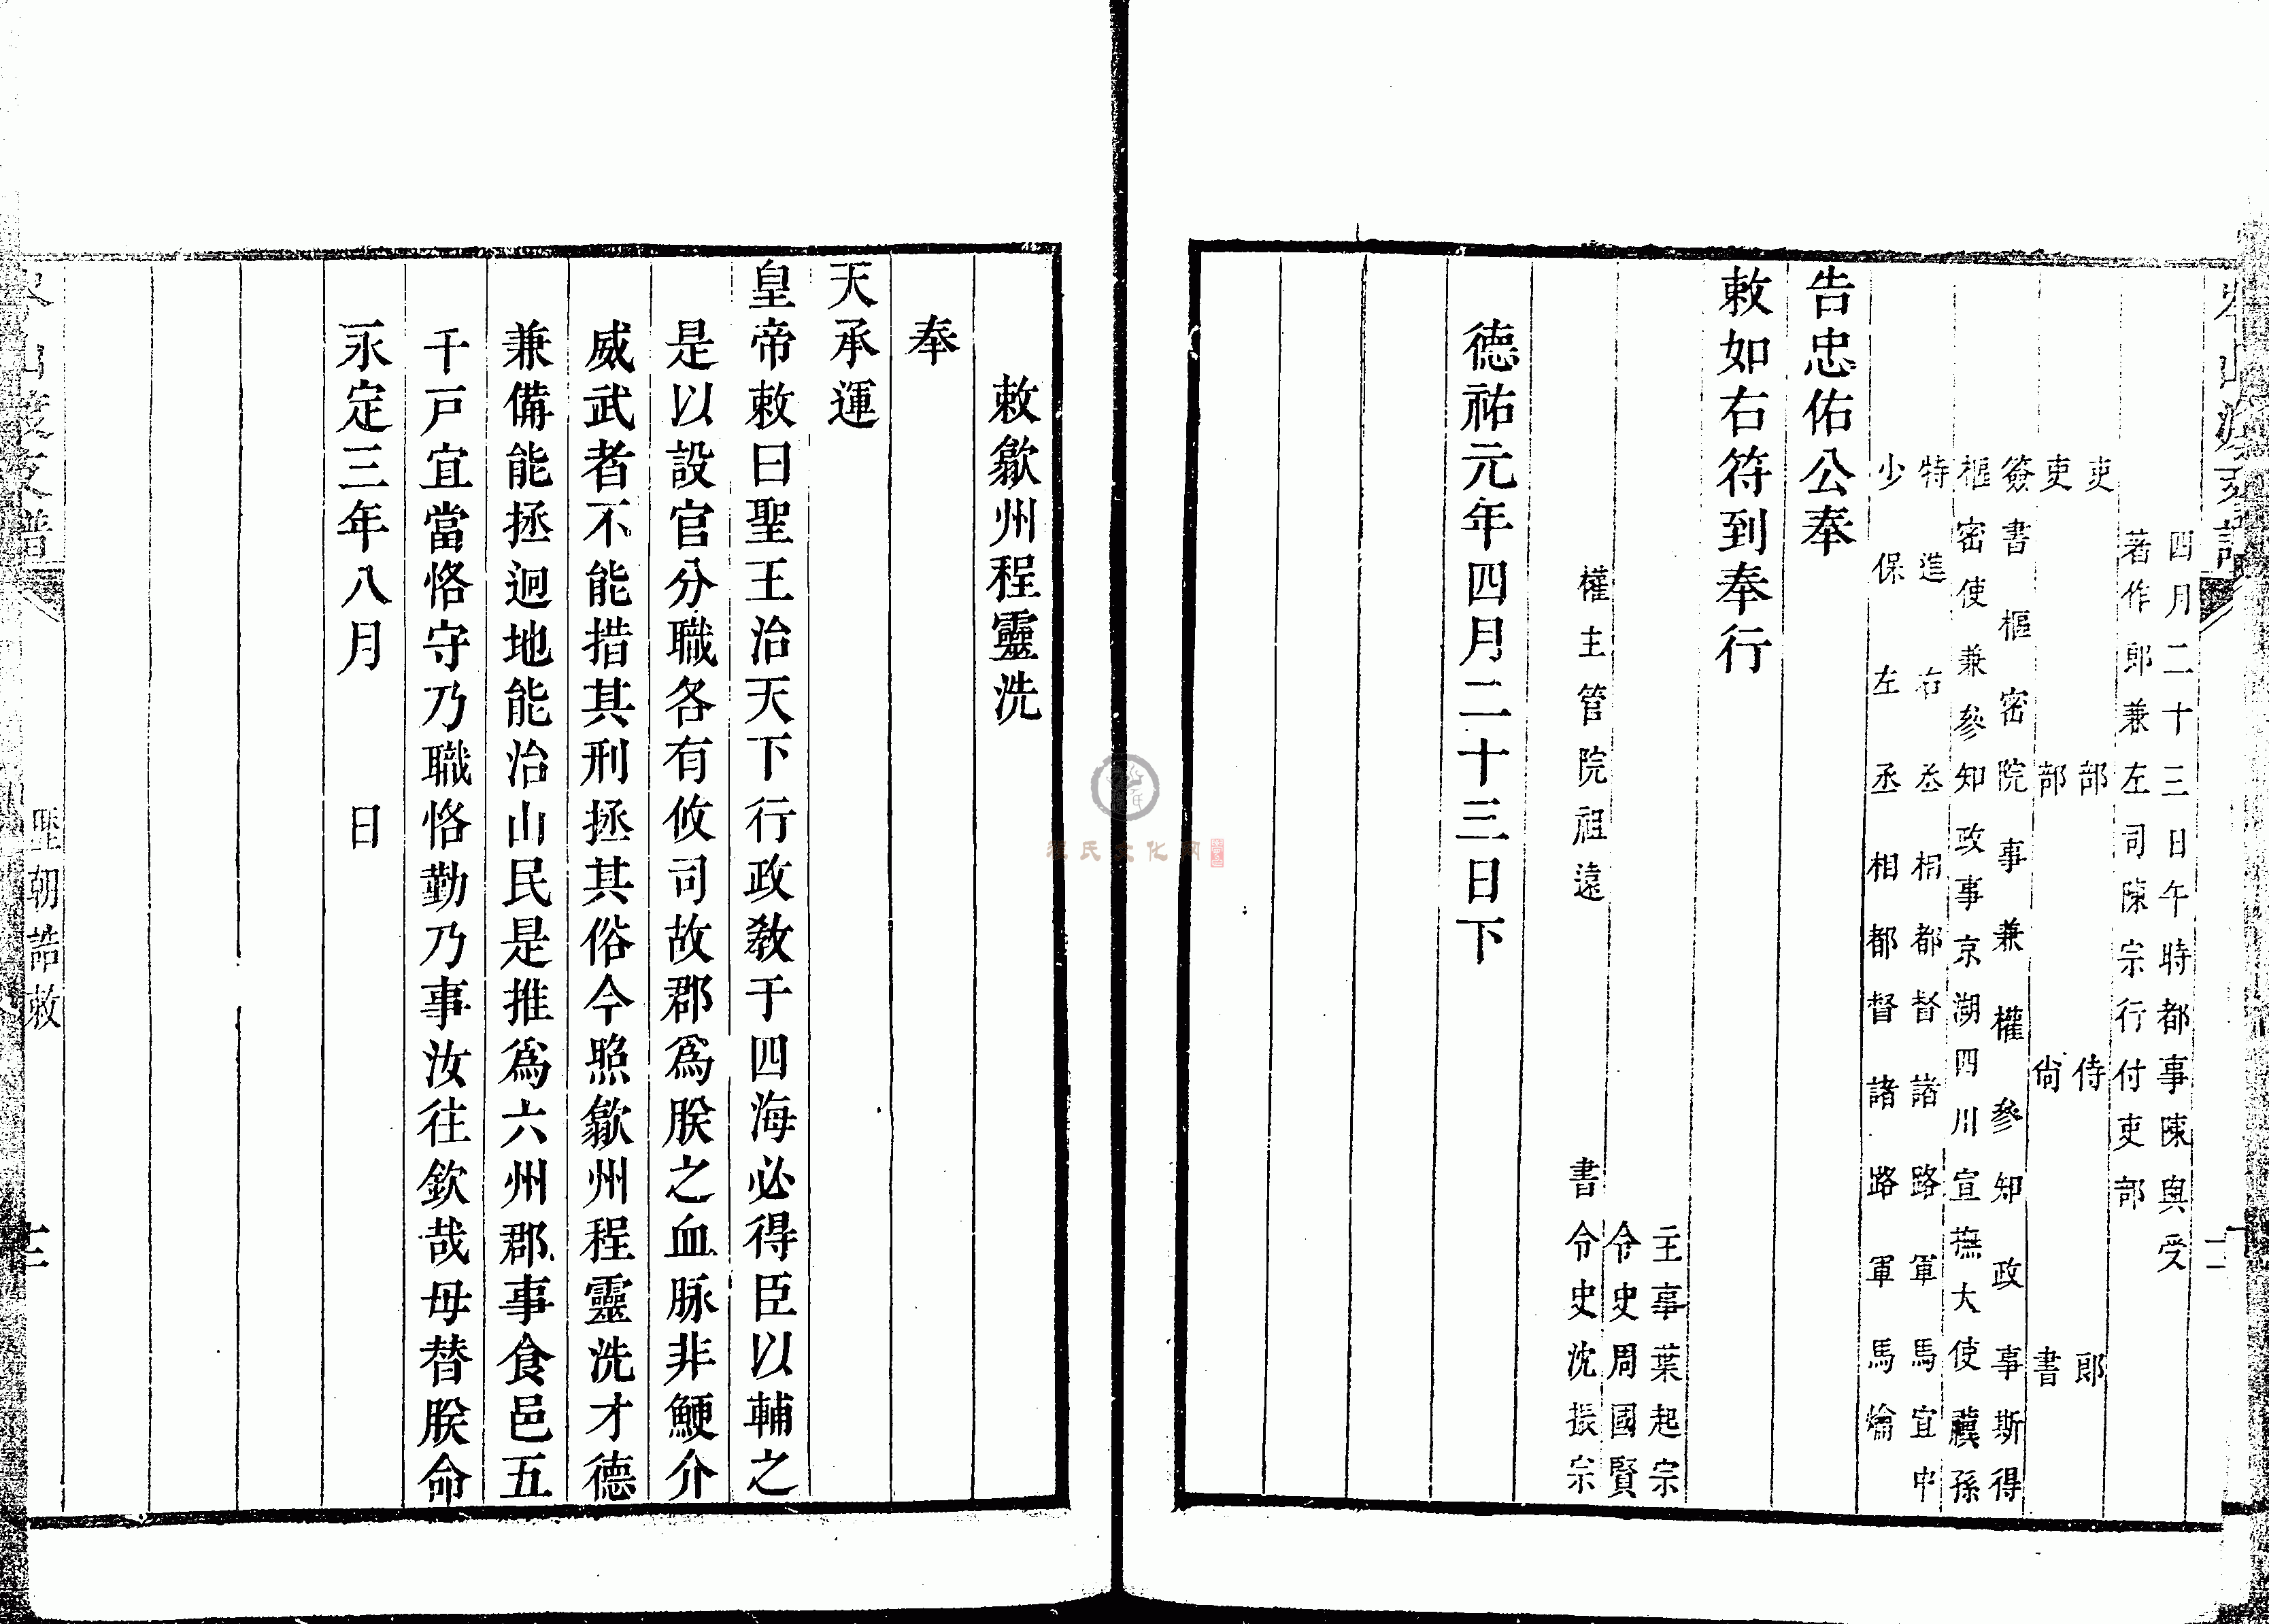 四月二十三日午時都事陳與受
著作郎兼左司陳宗行付吏部
吏部侍郎
吏部尚書
簽書樞密院事兼權參知政事斯得
樞密使兼參知政事京湖四川宣撫大使孫
特進右丞相都督諸路軍馬宜中
少保左丞相都督諸路軍馬爚
告忠佑公奉
敕如右符到奉行
主事葉起宗
令史周國賢
權主管院祖遠
書令史沈振宗
德祐元年四月二十三日下
敕歙州程靈洗
奉
天承運
皇帝敕曰聖王治天下行政教于四海必得臣以輔之
是以設官分職各有攸司故郡爲朕之血脉非鯁介
威武者不能措其刑拯其俗今照歙州程靈洗才德
兼備能拯迥地能治山民是推爲六州郡事食邑五
千戸宜當恪守乃職恪勤乃事汝往欽哉毋替朕命
永定三年八月 日
歷朝誥敕
程氏文化网